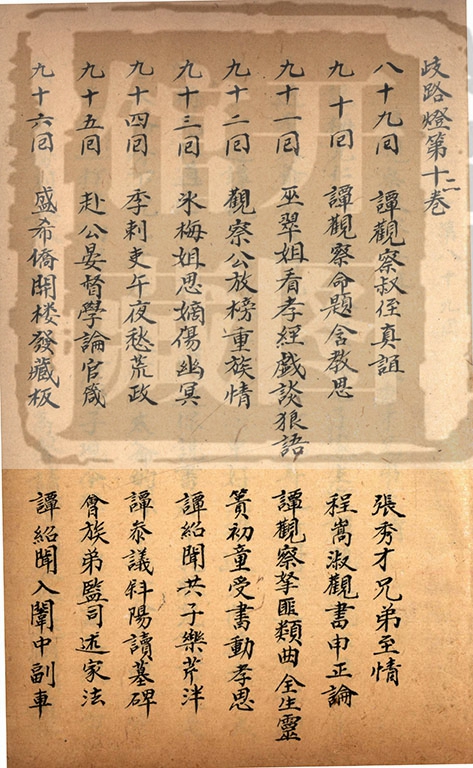 歧路燈第十二卷
八十九回　譚觀察叔侄真誼　張秀才兄弟至情
九十回　譚觀察命題含教思　程嵩淑觀書申正論
九十一回　巫翠姐看孝經戲談狠語　譚觀察拏匪類曲全生靈
九十二回　觀察公放榜重族情　簣初童受書動孝思
九十三回　氷梅姐思嫡傷幽冥　譚紹聞共子樂芹泮
九十四回　季刺吏午夜愁荒政　譚叅議斜陽讀墓碑
九十五回　赴公晏督學論官箴　會族弟監司述家法
九十六回　盛希僑開楼發藏板　譚紹聞入闈中副車